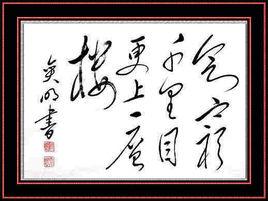 欲窮
千里目
更上一层
楼
明書